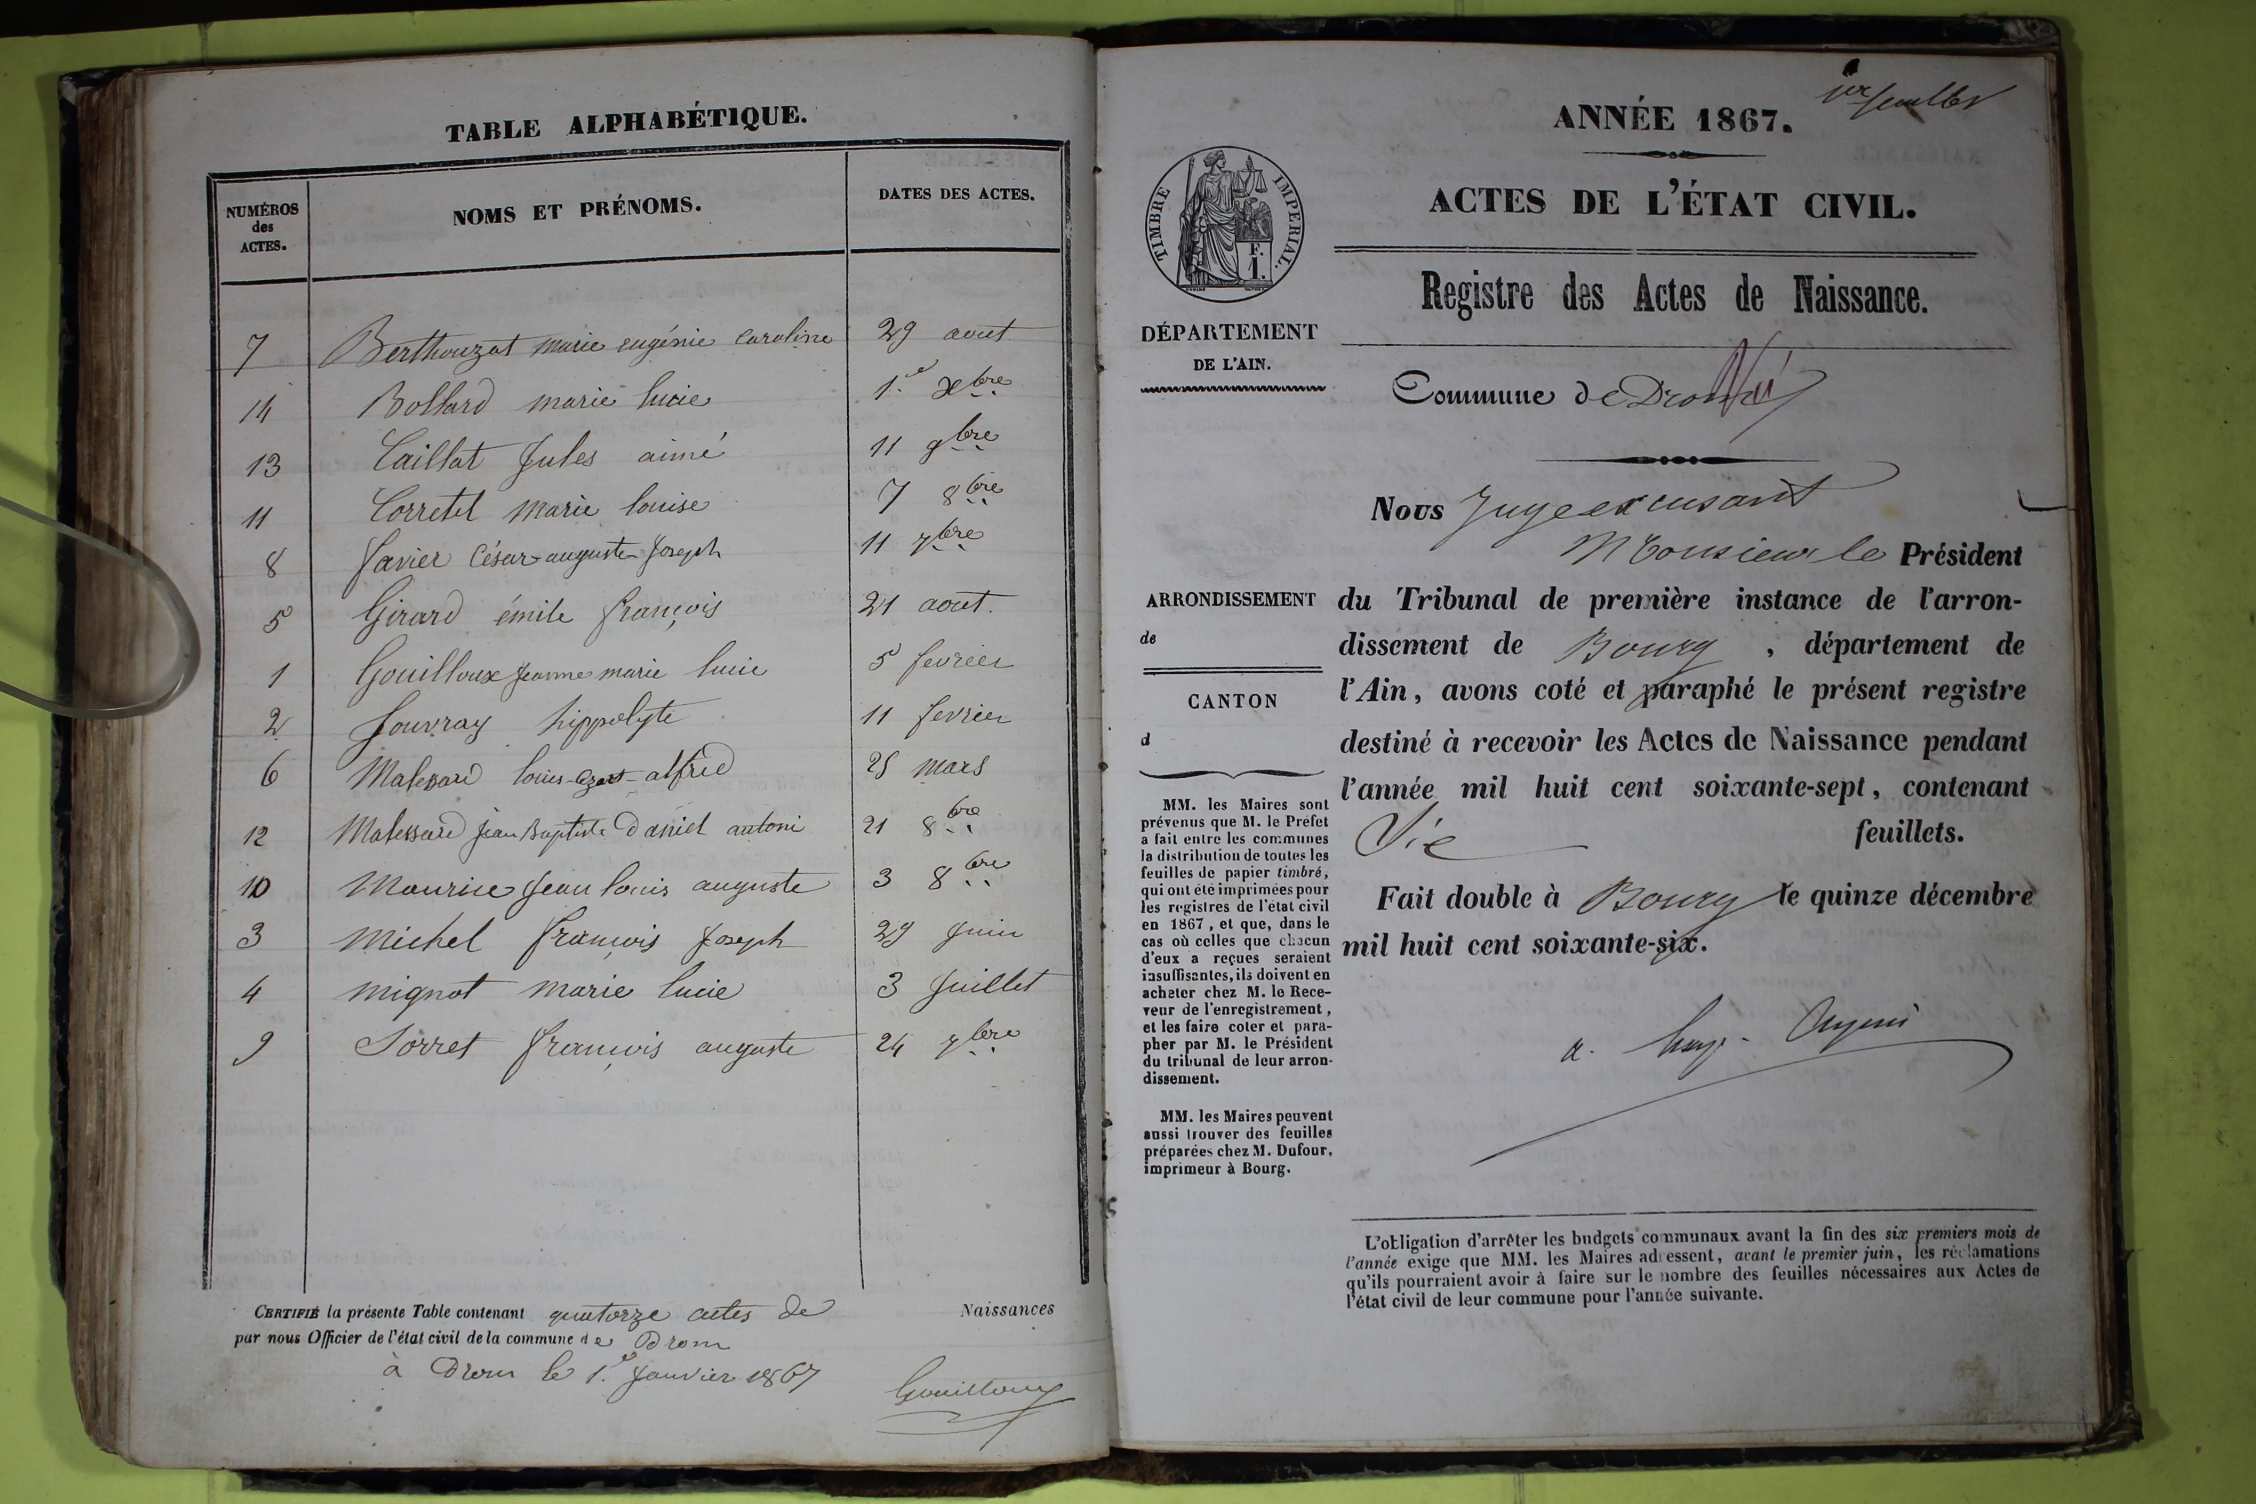 TABLE ALPHABÉTIQUE.
NUMÉROS des ACTES. NOMS ET PRÉNOMS. DATES DES ACTES.
7 Berthouzat marie eugénie caroline 29 aout
14 Bollard marie lucie 1.e Xbre
13 Caillat Jules aimé 11 9bre
11 Corretel marie louise 7 8bre
8 favier César auguste Joseph 11 7bre
5 Girard émile françois 21 aout.
1 Gouilloux Jeanne marie lucie 5 fevrier
2 Jouvray hippolyte 11 fevrier
6 louis alfred 25 mars
12 Malessard Jean Baptiste Daniel antoni 21 8bre
10 Maurice Jean louis auguste 3 8bre
3 Michel françois Joseph 29 Juin
4 mignot marie lucie 3 Juillet
9 Sorret françois auguste 24 7bre
CERTIFIÉ la présente Table contenant quatorze actes de Naissances
par nous Officier de l'état civil de la commune de Drom
à Drom le 1.e Janvier 1867
Gouilloux
1er feuillet
ANNÉE 1867.
ACTES DE L'ÉTAT CIVIL.
Registre des Actes de Naissance.
TIMBRE IMPERIAL.
F.
1.
DÉPARTEMENT
DE L'AIN.
Commune de Drom
Vu
Nous Juge excusant
Monsieur le Président
du Tribunal de première instance de l'arron-
dissement de Bourg, département de
l'Ain, avons coté et paraphé le présent registre
destiné à recevoir les Actes de Naissance pendant
l'année mil huit cent soixante-sept, contenant
Six feuillets.
Fait double à Bourg le quinze décembre
mil huit cent soixante-six.
ARRONDISSEMENT
de
CANTON
d
MM. les Maires sont
prévenus que M. le Préfet
a fait entre les communes
la distribution de toutes les
feuilles de papier timbré,
qui ont été imprimées pour
les registres de l'état civil
en 1867, et que, dans le
cas où celles que chacun
d'eux a reçues seraient
insuffisantes, ils doivent en
acheter chez M. le Rece-
veur de l'enregistrement,
et les faire coter et para-
pher par M. le Président
du tribunal de leur arron-
dissement.
MM. les Maires peuvent
aussi trouver des feuilles
préparées chez M. Dufour,
imprimeur à Bourg.
L'obligation d'arrêter les budgets communaux avant la fin des six premiers mois de
l'année exige que MM. les Maires adressent, avant le premier juin, les réclamations
qu'ils pourraient avoir à faire sur le nombre des feuilles nécessaires aux Actes de
l'état civil de leur commune pour l'année suivante.